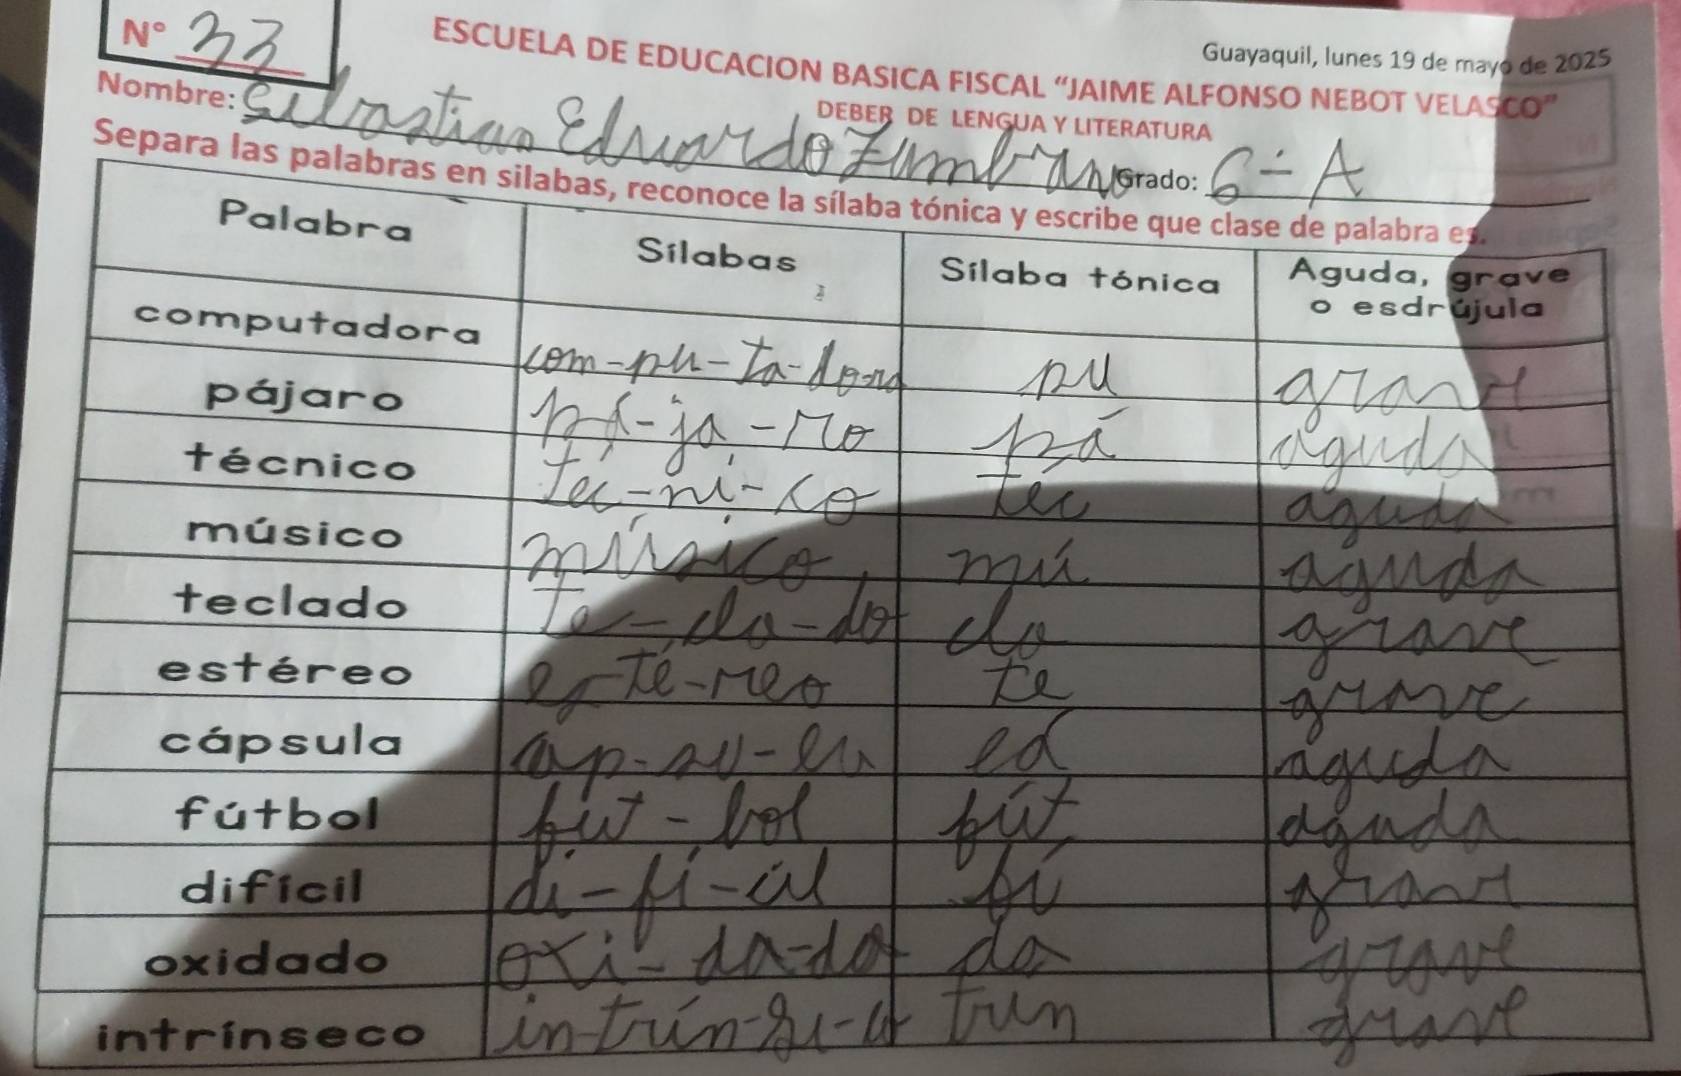 N° 33
ESCUELA DE EDUCACION BASICA FISCAL “JAIME ALFONSO NEBOT VELASCO”
Guayaquil, lunes 19 de mayo de 2025
DEBER DE LENGUA Y LITERATURA
Nombre: Sebastian Eduardo Zambrano Grado: 6 - A
Separa las palabras en silabas, reconoce la sílaba tónica y escribe que clase de palabra es.
Palabra Sílabas Sílaba tónica Aguda, grave o esdrújula
computadora com-pu-ta-do-ra pu grave
pájaro pá-ja-ro pá aguda
técnico téc-ni-co tec aguda
músico músico mú aguda
teclado te-cla-do cla grave
estéreo es-té-reo te grave
cápsula cap-su- aguda
fútbol fút-bol fút aguda
difícil di-fí-cil fí grave
oxidado oxi-da-do da grave
intrínseco in-trín- trin grave